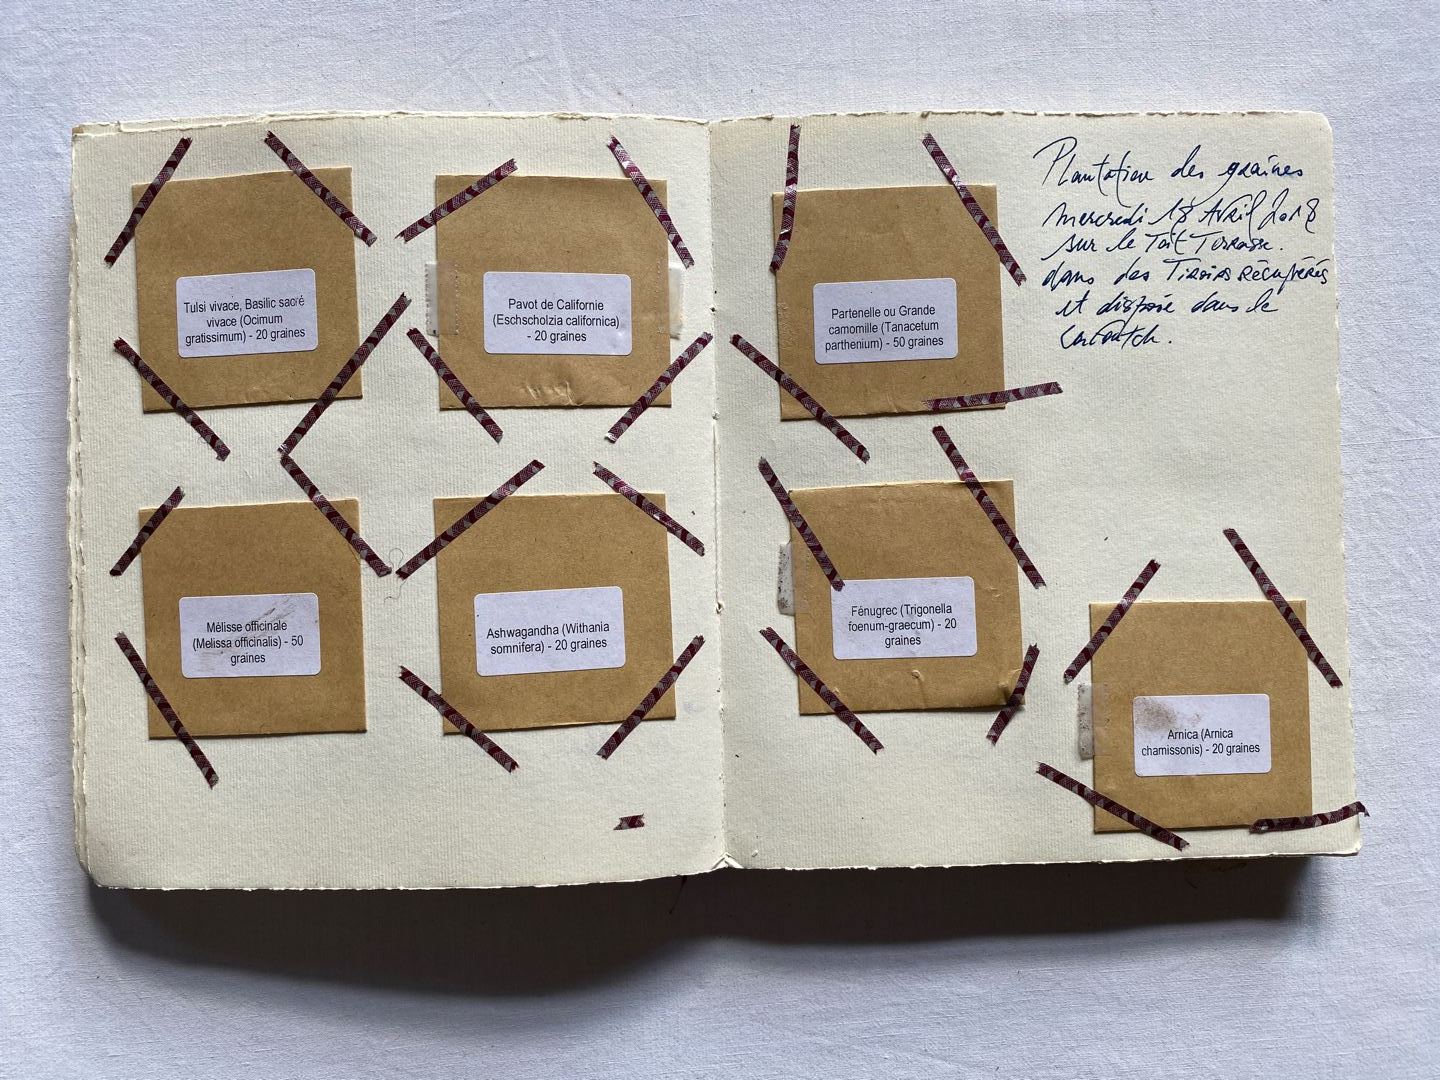 Tulsi vivace, Basilic sacré
vivace (Ocimum
gratissimum) - 20 graines
Pavot de Californie
(Eschscholzia californica)
- 20 graines
Mélisse officinale
(Melissa officinalis) - 50
graines
Ashwagandha (Withania
somnifera) - 20 graines
Partenelle ou Grande
camomille (Tanacetum
parthenium) - 50 graines
Plantation des graines
mercredi 18 Avril 2018
sur le Toit Terrasse.
dans des Tiroirs récupérés
et disposé dans le
Fénugrec (Trigonella
foenum-graecum) - 20
graines
Arnica (Arnica
chamissonis) - 20 graines